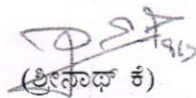 (ಶ್ರೀನಾಥ್ ಕೆ)